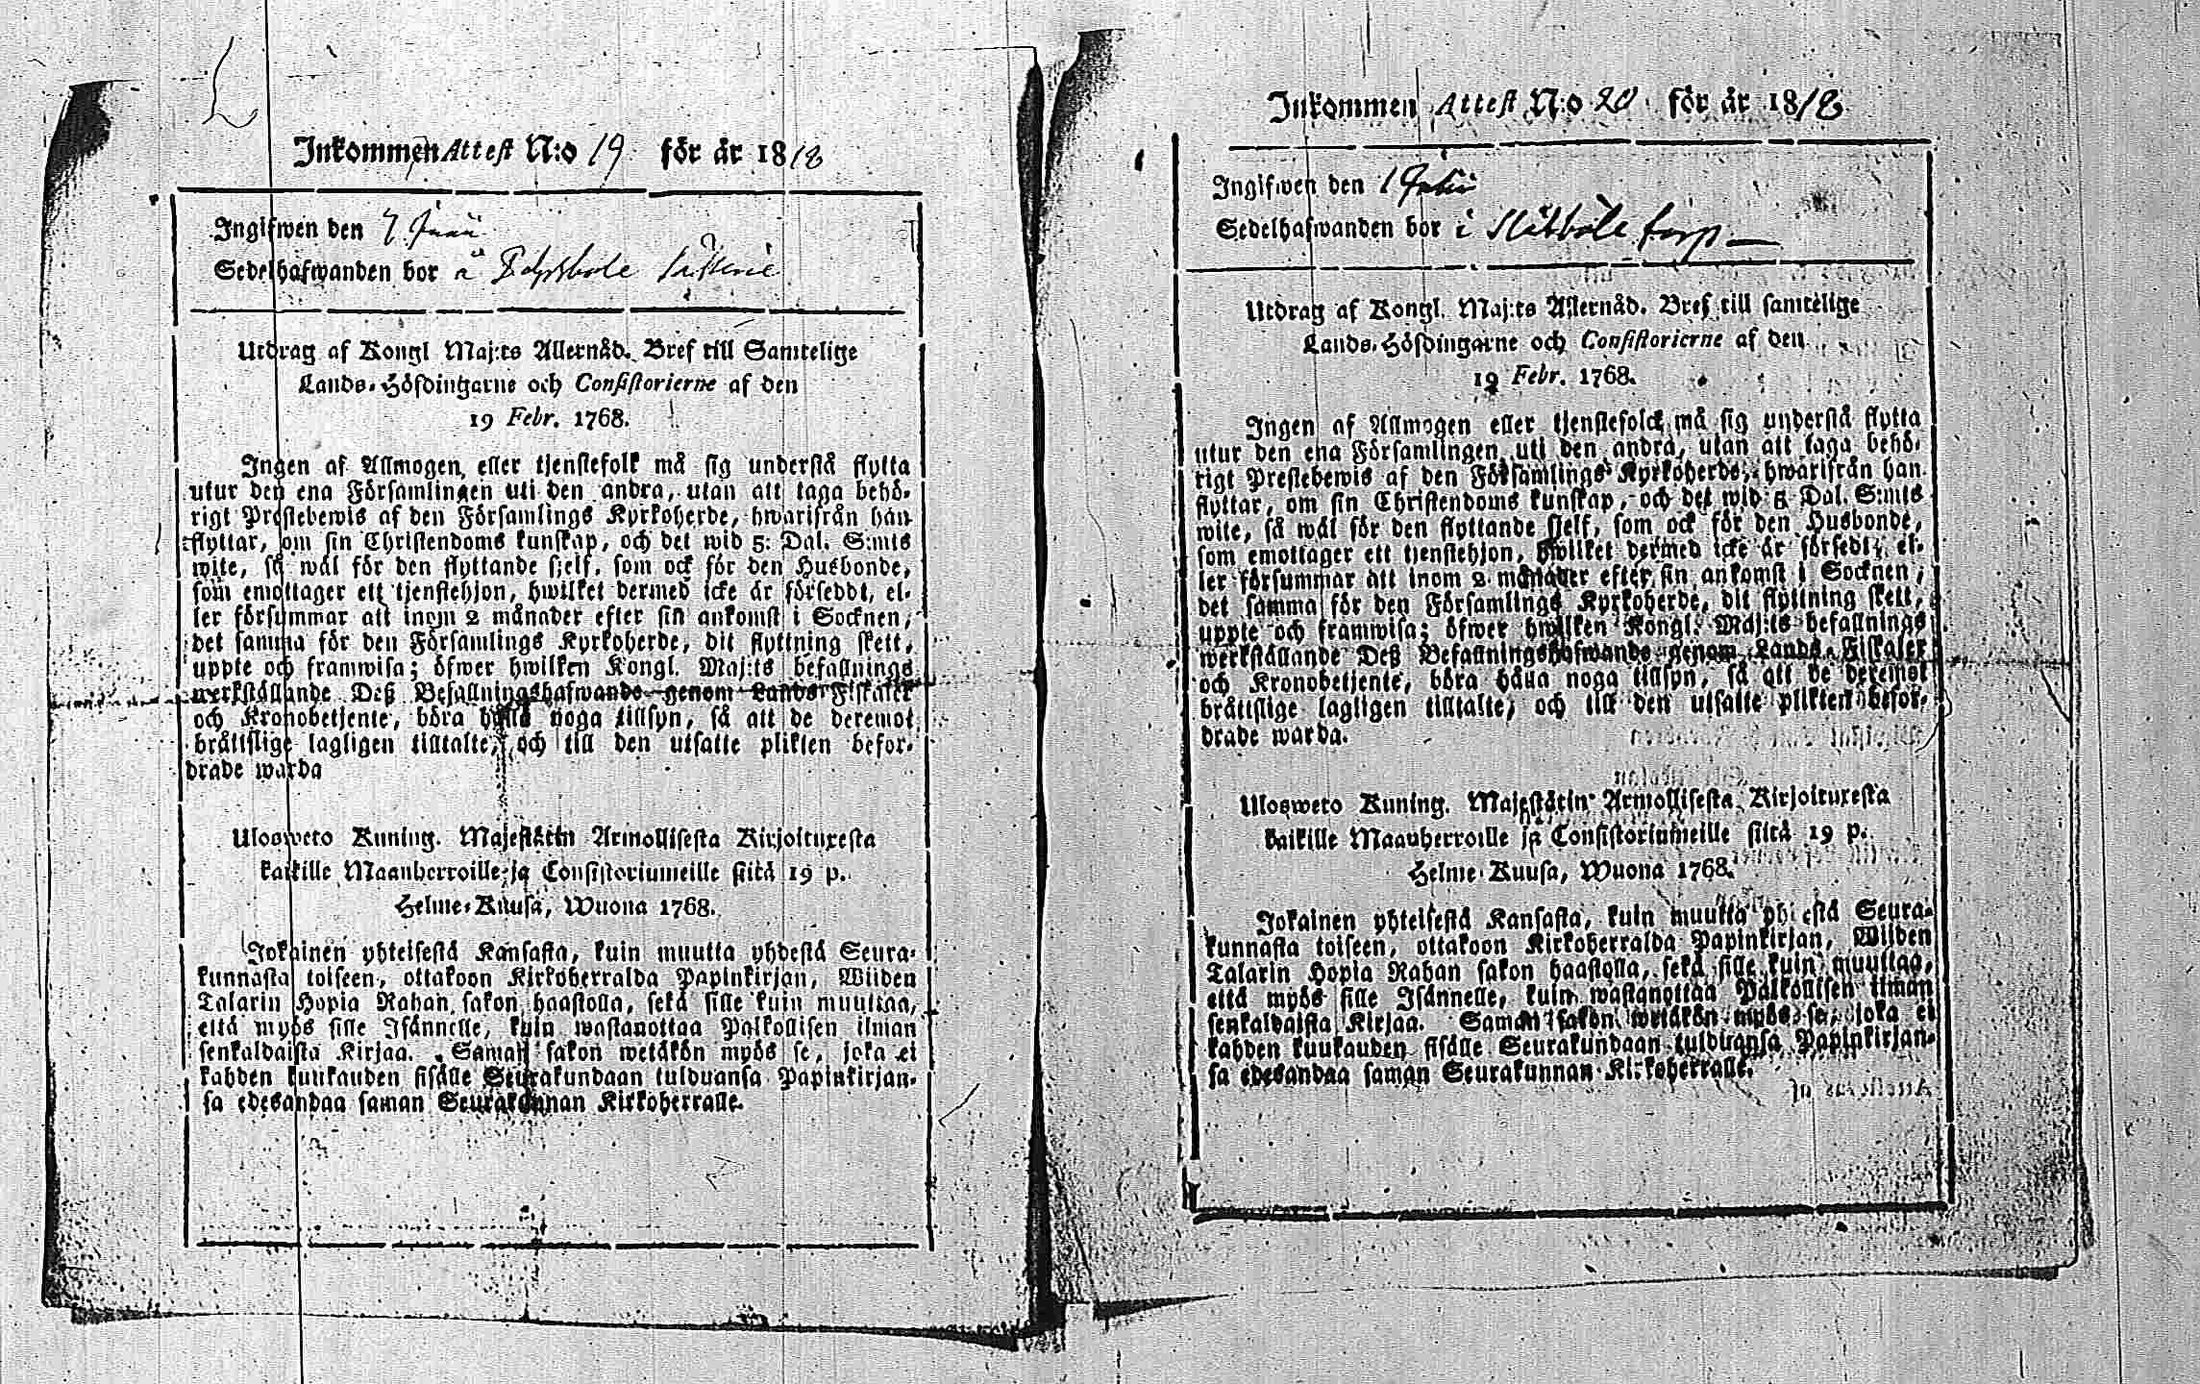 Inkommen Attest N:o 19 för år 1818
Ingifwen den 7 Junii
Sedelhafwanden bor å
Utdrag af Kongl Maj:ts Allernåd. Bref till Samtelige
Lands-Höfdingarne och Consistorierne af den
19 Febr. 1768.
Ingen af Allmogen eller tjenstefolk må sig understå flytta
utur den ena Församlingen uti den andra, utan att taga behö-
rigt Prestebewis af den Församlings Kyrkoherde, hwarifrån han
flyttar, om sin Christendoms kunskap, och det wid 5: Dal. S:mts
wite, så wäl för den flyttande sjelf, som ock för den Husbonde,
som emottager ett tjenstehjon, hwilket dermed icke är förseddt, el-
ler försummar att inom 2 månader efter sin ankomst i Socknen,
det samma för den Församlings Kyrkoherde, dit flyttning skett,
uppte och framwisa; öfwer hwilken Kongl. Maj:ts befallnings
werkställande Deß Befallningshafwande genom Lands Fiskaler
och Kronobetjente, böra hålla noga tillsyn, så att de deremot
bråttslige lagligen tilltalte, och till den utsatte plikten befor-
drade warda
Ulosweto Kuning. Majestätin Armollisesta Kirjoituxesta
kaikille Maanherroille ja Consistoriumeille siitä 19 p.
Helme-Kuusa, Wuona 1768.
Jokainen yhteisestä Kansasta, kuin muutta yhdestä Seura-
kunnasta toiseen, ottakoon Kirkoherralda Papinkirjan, Wiiden
Talarin Hopia Rahan sakon haastolla, sekä sille kuin muuttaa,
että myös sille Isännelle, kuin wastanottaa Palkollisen ilman
senkaldaista Kirjaa. Saman sakon wetäkön myös se, joka ei
kahden kuukauden sisälle Seurakundaan tulduansa Papinkirjan-
sa edesandaa saman Seurakunnan Kirkoherralle.
Inkommen Attest N:o 20 för år 1818
Ingifwen den 1
Sedelhafwanden bor i torp
Utdrag af Kongl. Maj:ts Allernåd. Bref till samtelige
Lands-Höfdingarne och Consistorierne af den
19 Febr. 1768.
Ingen af Allmogen eller tjenstefolck må sig understå flytta
utur den ena Församlingen uti den andra, utan att taga behö-
rigt Prestebewis af den Församlings Kyrkoherde, hwarifrån han
flyttar, om sin Christendoms kunskap, och det wid 5 Dal. S:mts
wite, så wäl för den flyttande sjelf, som ock för den Husbonde,
som emottager ett tjenstehjon, hwilket dermed icke är försedt, el-
ler försummar att inom 2 månader efter sin ankomst i Socknen,
det samma för den Församlings Kyrkoherde, dit flyttning skett,
uppte och framwisa; öfwer hwilken Kongl. Maj:ts befallnings
werkställande Deß Befallningshafwande genom Lands Fiskaler
och Kronobetjente, böra hålla noga tillsyn, så att de deremot
bråttslige lagligen tilltalte, och till den utsatte plikten befor-
drade warda.
Ulosweto Kuning. Majestätin Armollisesta Kirjoituxesta
kaikille Maanherroille ja Consistoriumeille siitä 19 p.
Helme-Kuusa, Wuona 1768.
Jokainen yhteisestä Kansasta, kuin muutta yhdestä Seura-
kunnasta toiseen, ottakoon Kirkoherralda Papinkirjan, Wiiden
Talarin Hopia Rahan sakon haastolla, sekä sille kuin muuttaa,
että myös sille Isännelle, kuin wastanottaa Palkollisen ilman
senkaldaista Kirjaa. Saman sakon wetäkön myös se, joka ei
kahden kuukauden sisälle Seurakundaan tulduansa Papinkirjan-
sa edesandaa saman Seurakunnan Kirkoherralle.